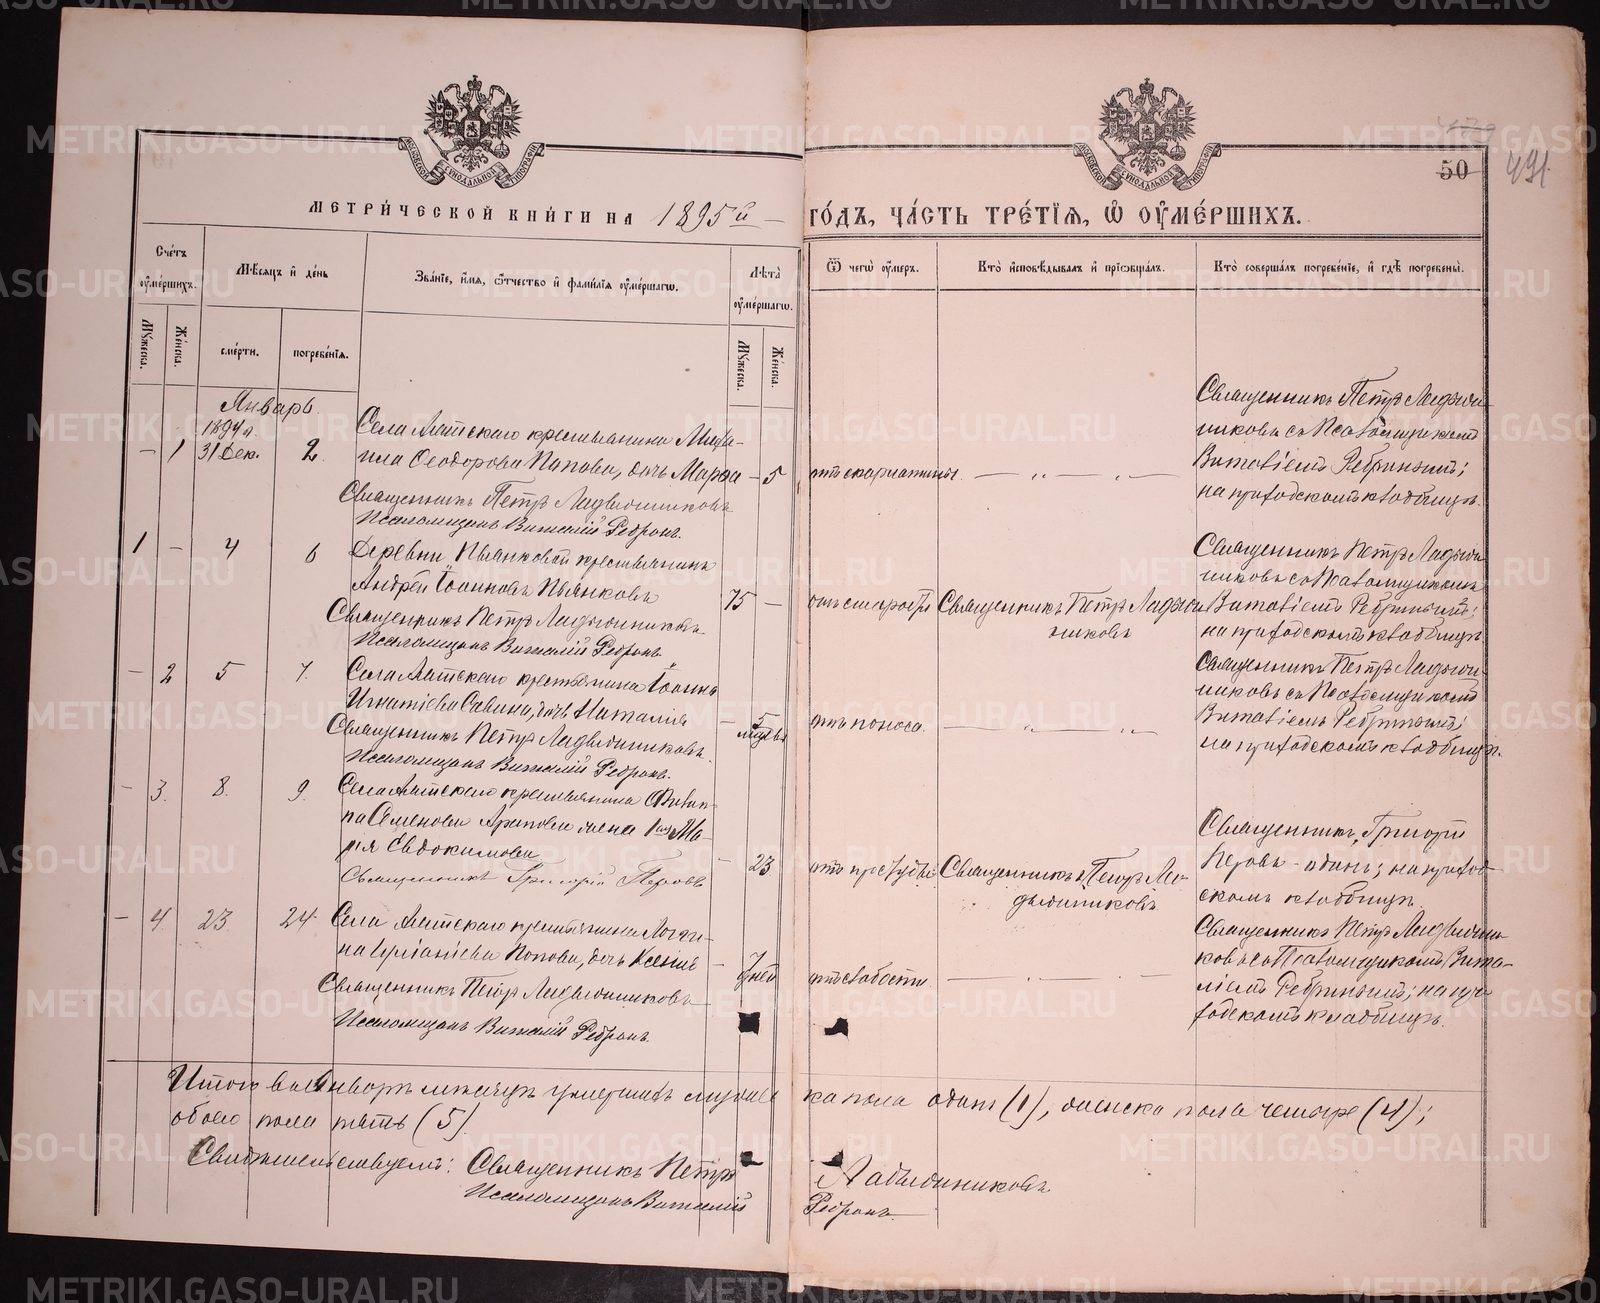 МОСКОВСКОЙ СѴНОДАЛЬНОЙ ТИПОГРАФІИ
МОСКОВСКОЙ СѴНОДАЛЬНОЙ ТИПОГРАФІИ
50
491
МЕТРИ́ЧЕСКОЙ КНИ́ГИ НА 1895й
ГО́ДЪ, ЧА́СТЬ ТРЕ́ТІѦ, Ѽ ОУ҆МЕ́РШИХЪ.
Сче́тъ оу҆ме́ршихъ.
Мѣ́сѧцъ и҆ де́нь
Зва́нїе, и҆́мѧ, ѻ҆́тчество и҆ фами́лїѧ оу҆ме́ршагѡ.
Лѣ́та оу҆ме́ршагѡ.
Ѿ чегѡ̀ оу҆́меръ.
Кто̀ и҆сповѣ́дывалъ и҆ прїѡбща́лъ.
Кто̀ соверша́лъ погребе́нїе, и҆ гдѣ̀ погребены̀.
Мꙋ́жеска.
Же́нска.
сме́рти.
погребе́нїѧ.
Мꙋ́жеска.
Же́нска.
Январь.
1894 г.
– 1 31 Дек. 2
Села крестьянина Миха-
ила Ѳеодорова Попова, дочь Марѳа – 5
Священникъ Петръ Ладыжниковъ
Псаломщикъ Виталій Ребринъ.
отъ скарлатины.
Священникъ Петръ Ладыж-
никовъ съ Псаломщикомъ
Виталіемъ Ребринымъ;
на приходскомъ кладбищѣ.
1 – 4 6 Деревни Пьянковой крестьянинъ
Андрей Іоанновъ Пьянковъ 75 –
Священникъ Петръ Ладыжниковъ.
Псаломщикъ Виталій Ребринъ.
отъ старости
Священникъ Петръ Ладыж-
никовъ
Священникъ Петръ Ладыж-
никовъ съ Псаломщикомъ
Виталіемъ Ребринымъ;
на приходскомъ кладбищѣ
– 2 5 7. Села крестьянина Іоанна
Игнатіева Савина, дочь Наталія – 5
мѣсяц
Священникъ Петръ Ладыжниковъ.
Псаломщикъ Виталій Ребринъ.
отъ поноса.
Священникъ Петръ Ладыж-
никовъ съ Псаломщикомъ
Виталіемъ Ребринымъ;
на приходскомъ кладбищѣ.
– 3. 8. 9. Села крестьянина Филип-
па Семенова жена Ма-
рія Евдокимова – 23
Священникъ Григорій Перовъ
отъ простуды
Священникъ Петръ Ла-
дыжниковъ.
Священникъ Григорій
Перовъ – одинъ; на приход-
скомъ кладбищѣ.
– 4 23. 24. Села крестьянина
Попова, дочь Ксенія – 7
дней
Священникъ Петръ Ладыжниковъ
Псаломщикъ Виталій Ребринъ.
отъ слабости
Священникъ Петръ Ладыжни-
ковъ съ Псаломщикомъ Вита-
ліемъ Ребринымъ; на при-
ходскомъ кладбищѣ.
Итого въ Январѣ мѣсяцѣ умершихъ мужес
ка пола одинъ (1), женска пола четыре (4);
обоего пола пять (5)
Свидѣтельствуемъ: Священникъ Петръ
Ладыжниковъ
Псаломщикъ Виталій
Ребринъ.
METRIKI.GASO-URAL.RU